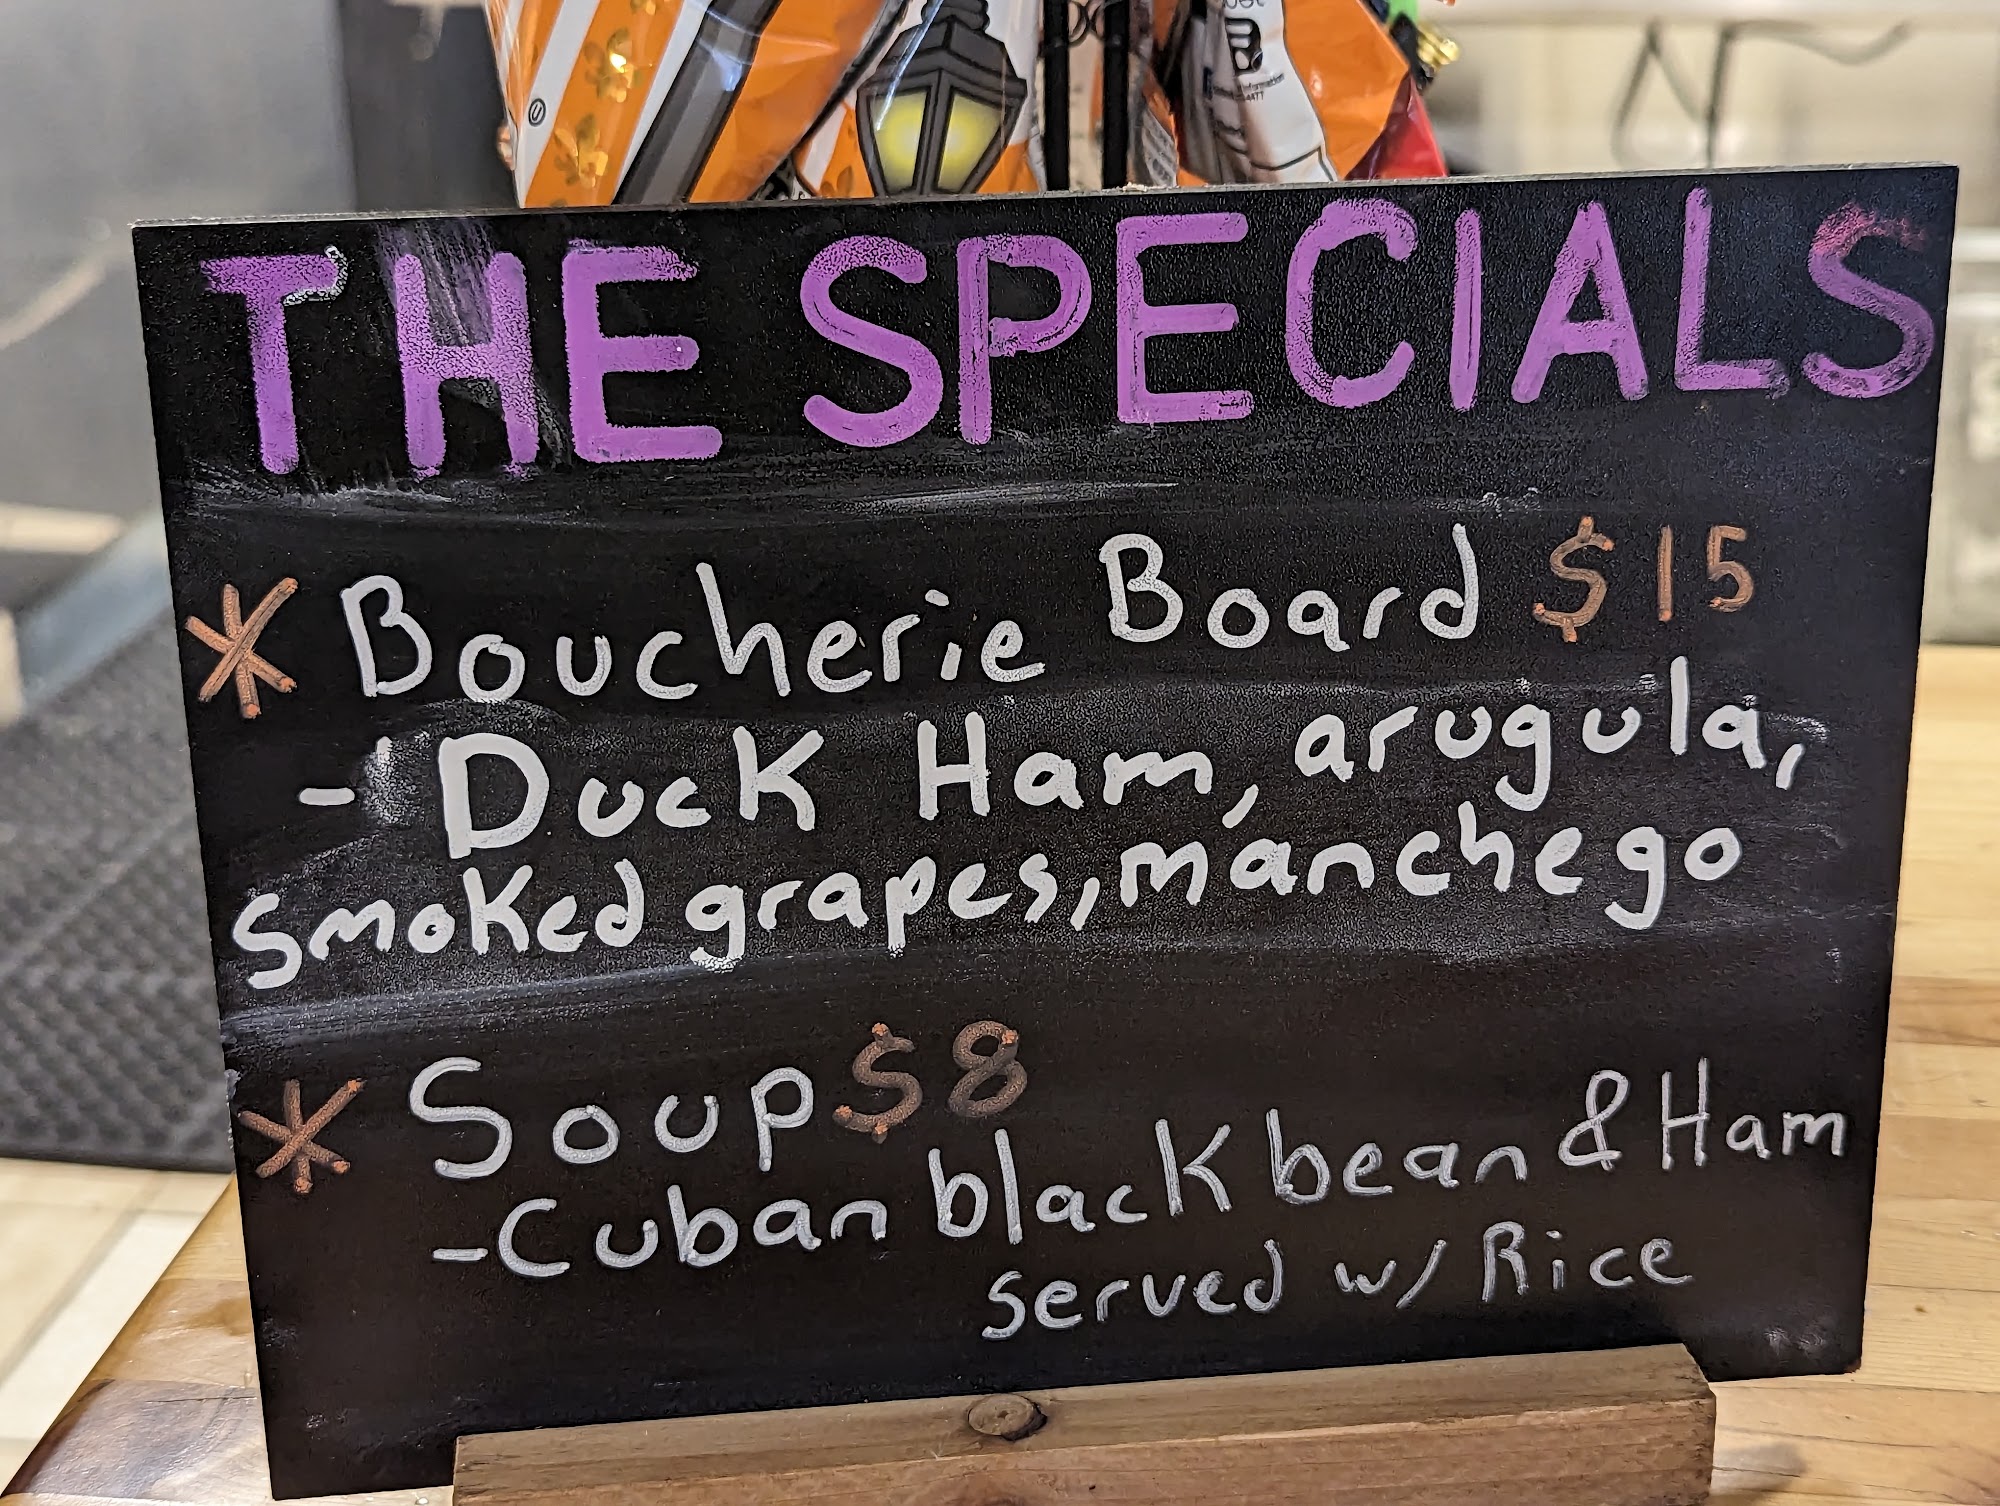 THE SPECIALS
* Boucherie Board $15
- Duck Ham, arugula,
smoked grapes, manchego
* Soup $8
- Cuban black bean & Ham
served w/ Rice